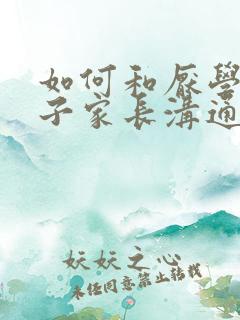 如何和厌學
子家长溝通
妖妖之心
未经同意禁止转载